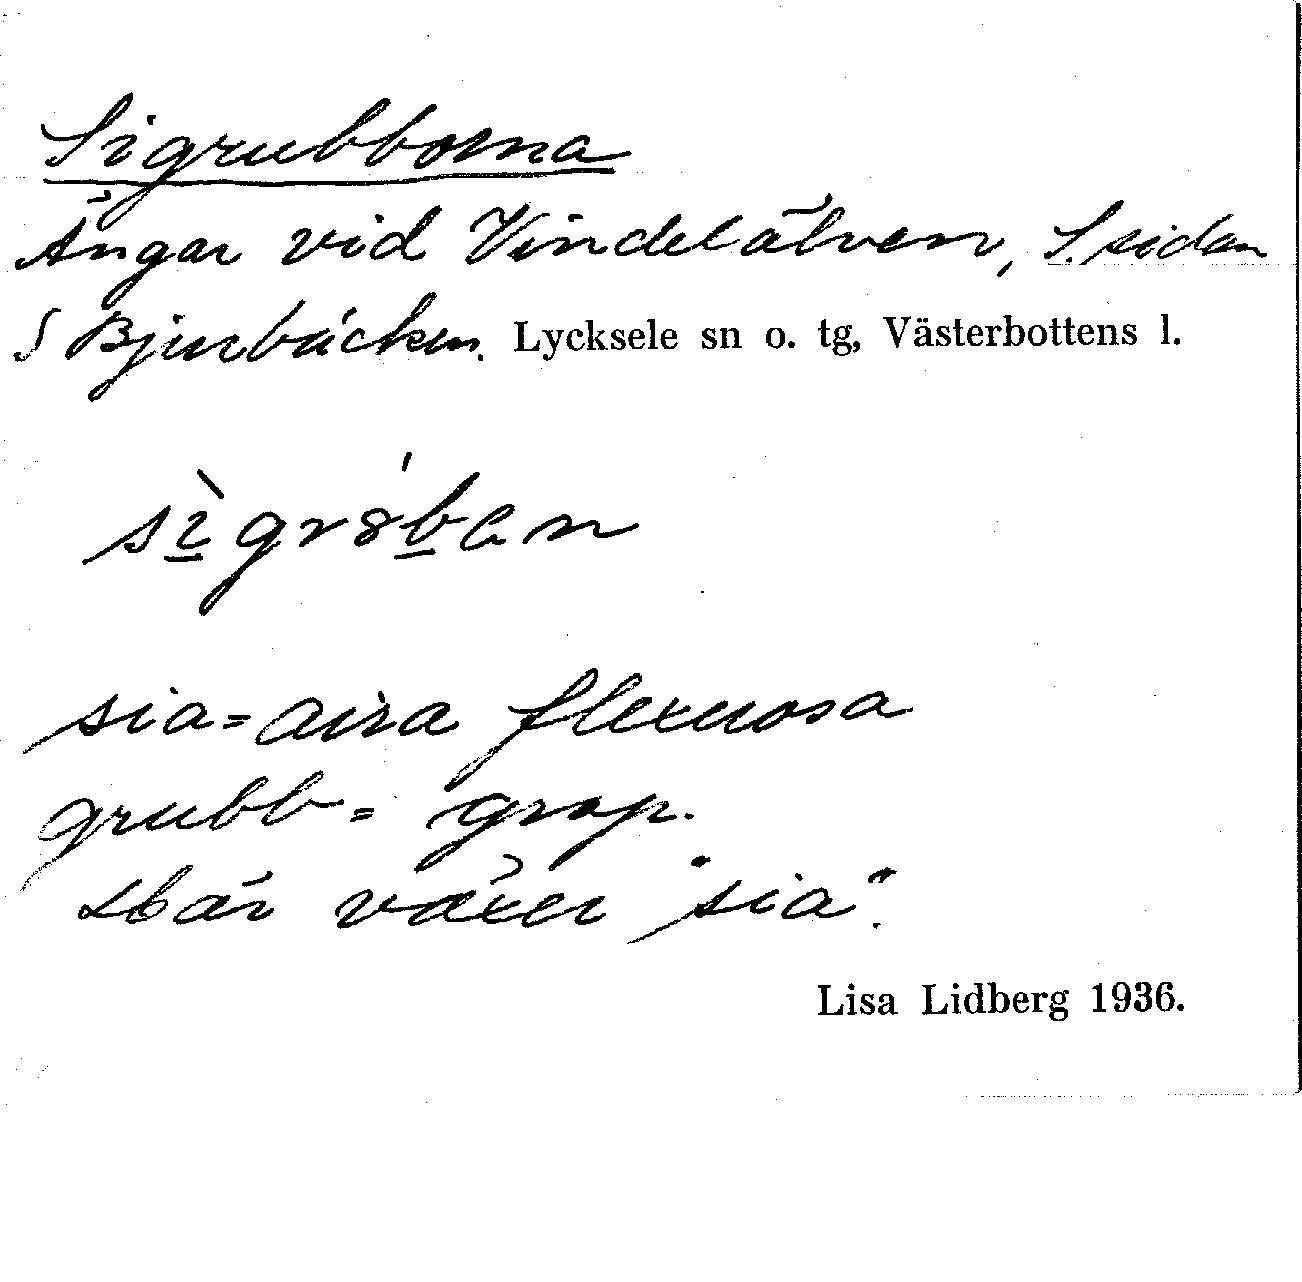 Sigrubborna
Ängar vid Vindelälven, S. sidan
S Bjurbäcken. Lycksele sn o. tg, Västerbottens l.
sìgró̱ban
sia = aira flexuosa
grubb = grop.
där växer "sia".
Lisa Lidberg 1936.